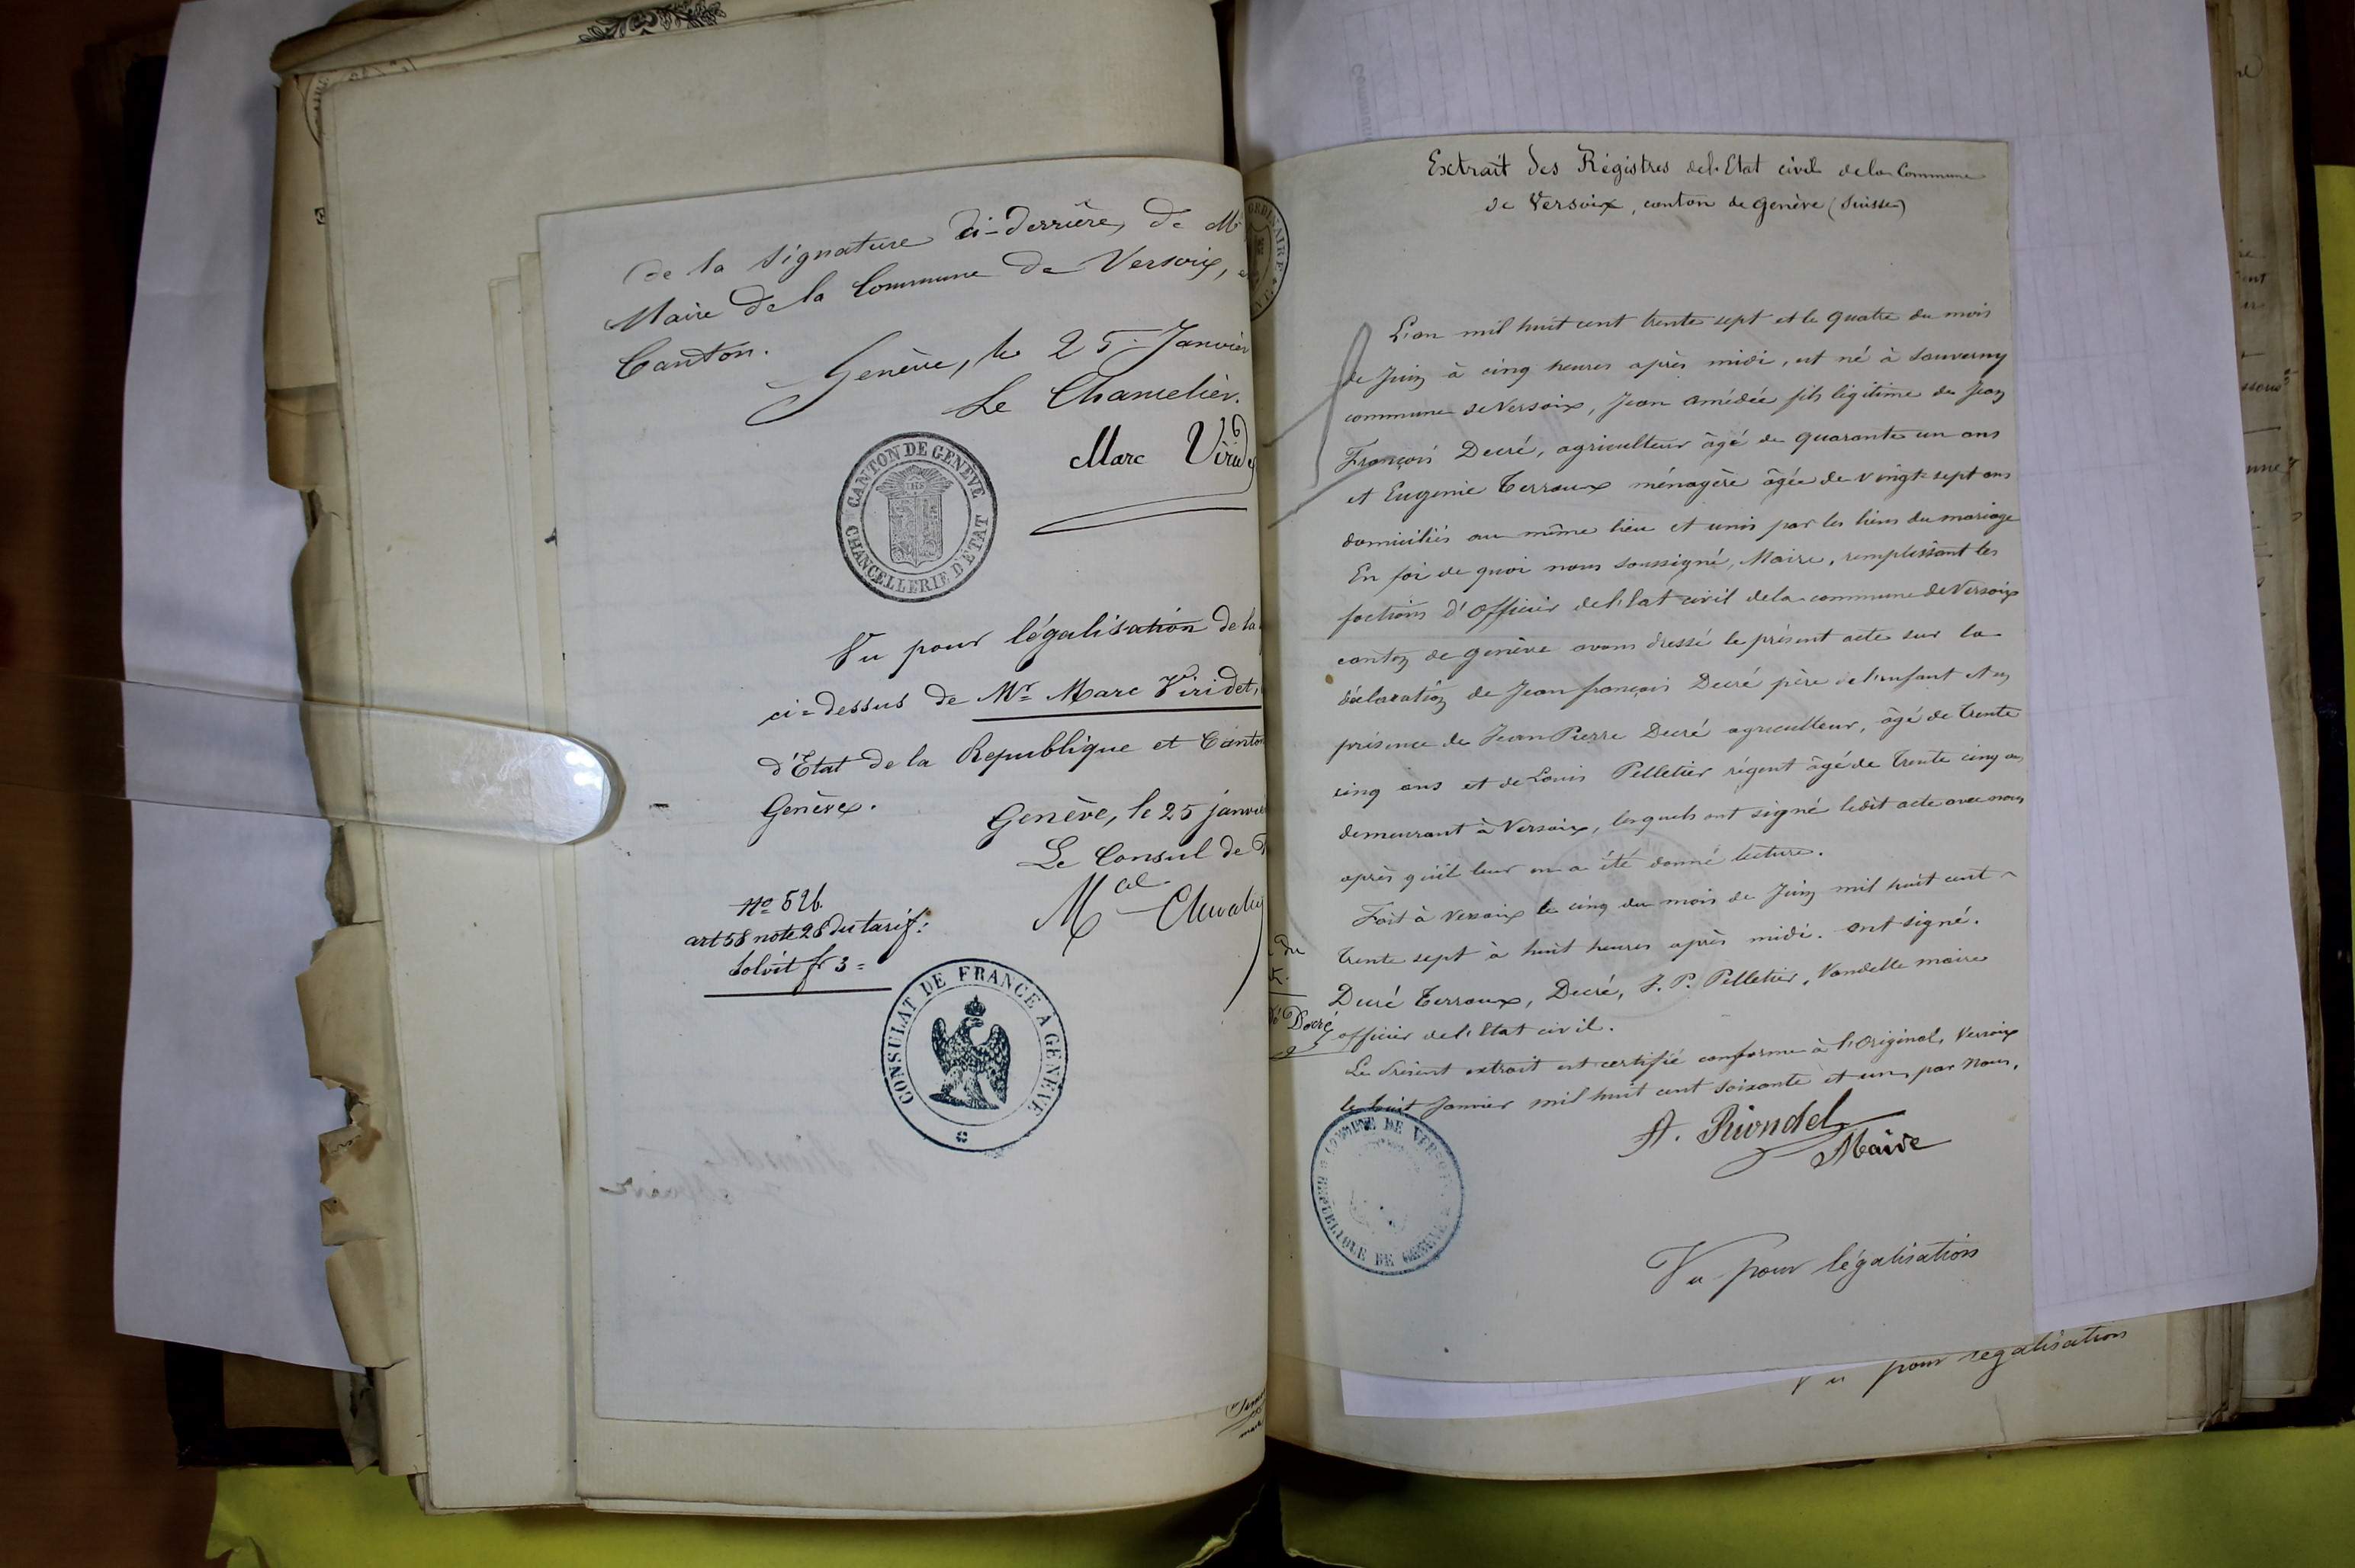 de la signature ci-derrière, de Mr
Maire de la Commune de Versoix,
Canton.
Genève, le 25 Janvier
Le Chancelier.
Marc Viridet
CANTON DE GENEVE
CHANCELLERIE D'ETAT
Vu pour légalisation de la
ci-dessus de Mr Marc Viridet,
d'Etat de la Republique et Canton
Genève.
Genève, le 25 janvier
Le Consul de
Mcel Chevalier
No 526.
art 58 note 28 du tarif:
Solvit fr 3=
CONSULAT DE FRANCE A GENEVE
Extrait des Régistres de l'Etat civil de la Commune
de Versoix, canton de genève (Suisse)
L'an mil huit cent trente sept et le quatre du mois
de Juin à cinq heures après midi, est né à Sauverny
commune de Versoix, Jean Amédée fils légitime de Jean
François Decré, agriculteur âgé de quarante un ans
et Eugenie Terroux ménagère âgée de vingt-sept ans
domiciliés au même lieu et unis par les liens du mariage
En foi de quoi nous soussigné, Maire, remplissant les
foctions d'Officier de l'Etat civil de la commune de Versoix
canton de genève avons dressé le présent acte sur la
déclaration de Jean françois Decré père de l'enfant et en
présence de Jean Pierre Decré agriculteur, âgé de trente
cinq ans et de Louis Pelletier régent âgé de trente cinq ans
demeurant à Versoix, lesquels ont signé ledit acte avec nous
après qu'il leur en a été donné lecture.
Fait à Versoix le cinq du mois de Juin mil huit cent
trente sept à huit heures après midi. ont signé.
Decré Terroux, Decré, J. P. Pelletier, Vandelle maire
officier de l'Etat civil.
Le Présent extrait est certifié conforme à l'Original, Versoix
le huit Janvier mil huit cent soixante et un, par Nous,
A. Riondel
Maire
COMMUNE DE VERSOIX
REPUBLIQUE DE GENEVE
Vu pour légalisation
du
Decré
pour légalisation